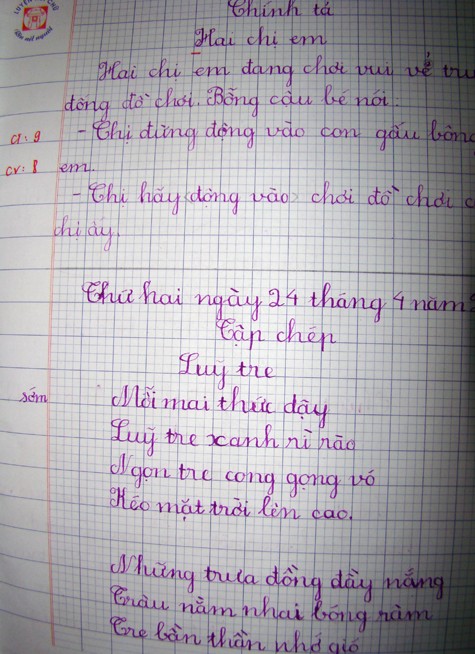 LUYỆN CHỮ
Chính tả
Hai chị em
Hai chị em đang chơi vui vẻ
đống đồ chơi. Bỗng cậu bé nói.
ct: 9
- Chị đừng động vào con gấu bông
cv: 8
em.
- Chị hãy (động vào) chơi đồ chơi
chị ấy.
Thứ hai ngày 24 tháng 4 năm
Tập chép
Luỹ tre
sớm
Mỗi mai thức dậy
Luỹ tre xanh rì rào
Ngọn tre cong gọng vó
Kéo mặt trời lên cao.
Những trưa đồng đầy nắng
Trâu nằm nhai bóng râm
Tre bần thần nhớ gió